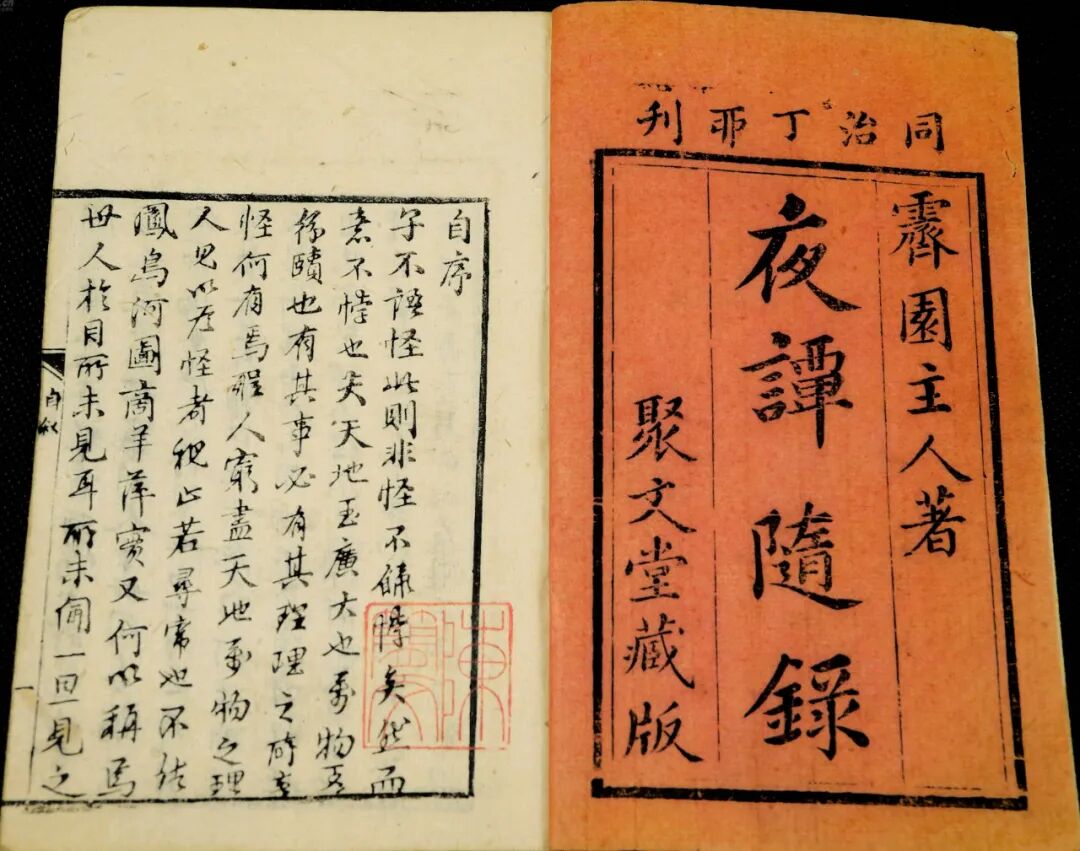 同治丁夘刊
霽園主人著
夜譚隨錄
聚文堂藏版
自序
子不語怪此則非怪不錄悖矣然而
意不悖也夫天地至廣大也萬物至
紛賾也有其事必有其理理之所在
怪何有焉聖人窮盡天地萬物之理
人見以为怪者視之若尋常也不然
鳳鳥河圖商羊萍實又何以稱焉
世人於目所未見耳所未聞一旦見之
自敘
一